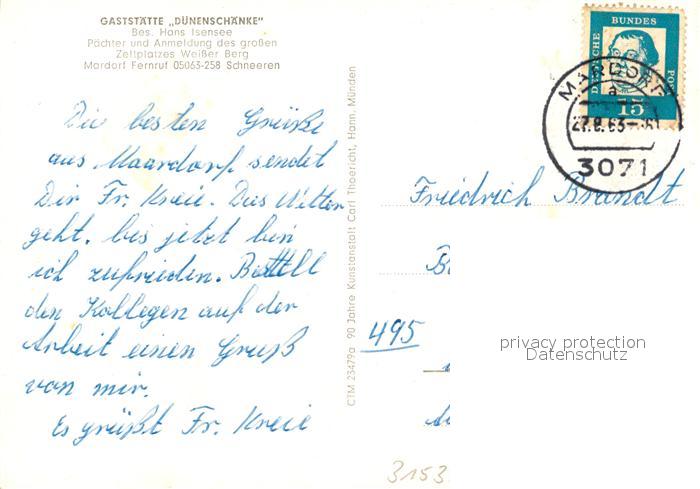 GASTSTÄTTE „DÜNENSCHÄNKE"
Bes. Hans Isensee
Pächter und Anmeldung des großen
Zeltplatzes Weißer Berg
Mardorf Fernruf 05063-258 Schneeren
Die besten Grüße
aus Maardorf sendet
Dir Fr. Kreie. Das Wetter
geht, bis jetzt bin
ich zufrieden. Bestell
den Kollegen auf der
Arbeit einen Gruß
von mir.
Es grüßt Fr. Kreie
CTM 23479a 90 Jahre Kunstanstalt Carl Thoericht, Hann. Münden
DEUTSCHE BUNDES POST
15
MARDORF
a
27.8.63
3071
Friedrich Brandt
495
privacy protection
Datenschutz
3153